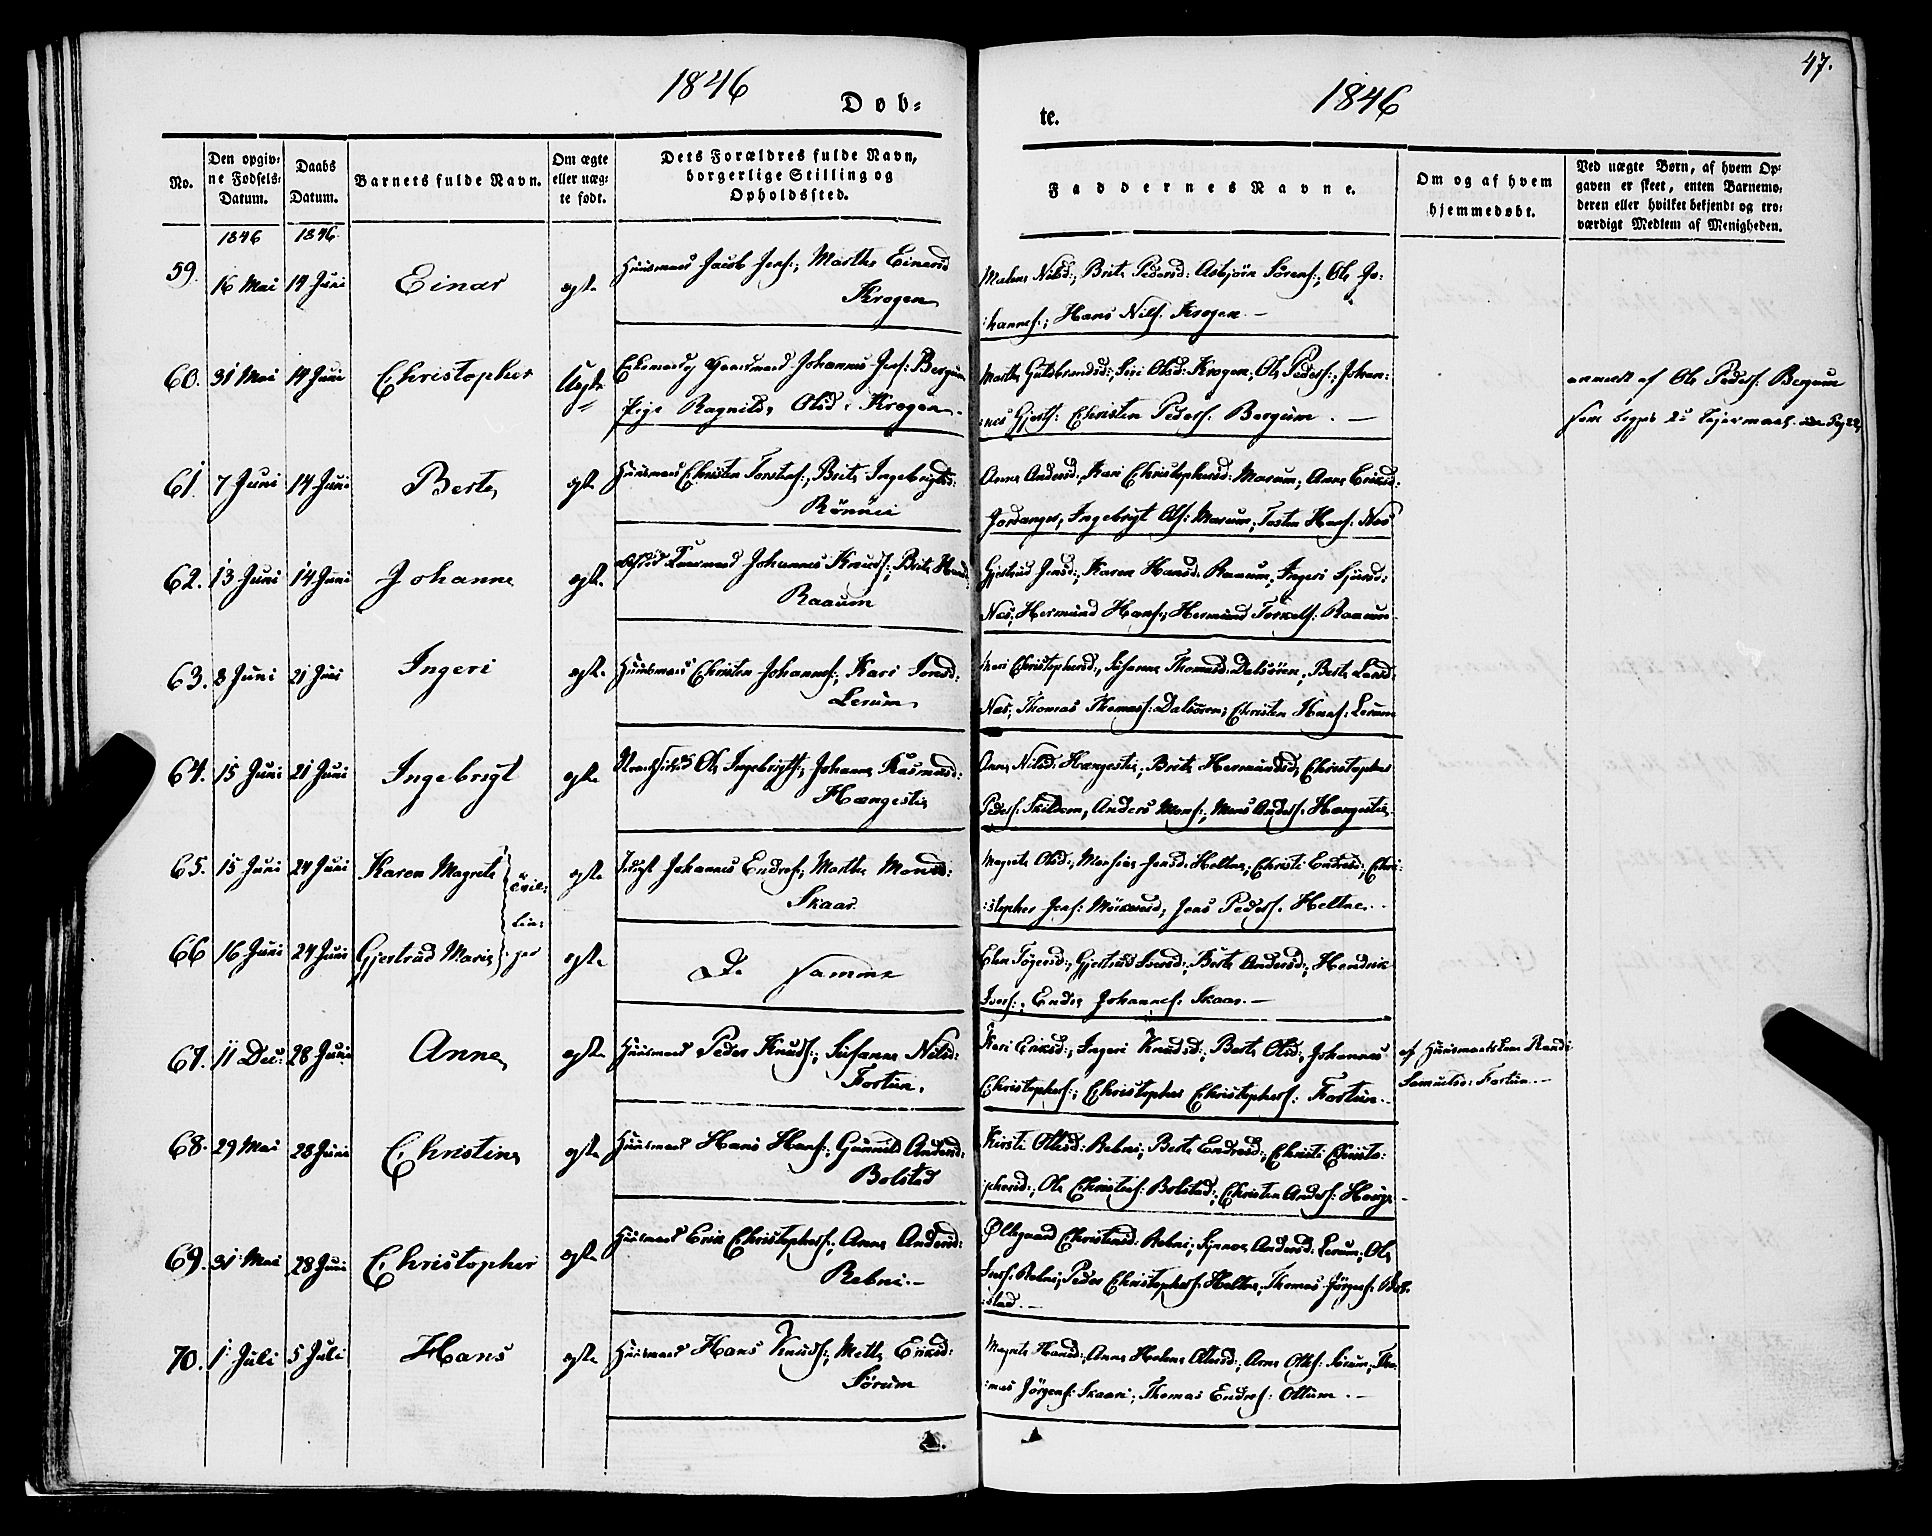 47.
1846
Døb-
1846
te.
No.
Den opgiv-
ne Fødsels-
Datum.
Daabs
Datum.
Barnets fulde Navn.
Om ægte
eller uæg-
te født.
Dets Forældres fulde Navn,
borgerlige Stilling og
Opholdssted.
Faddernes Navne.
Om og af hvem
hjemmedøbt.
Ved uægte Børn, af hvem Op-
gaven er skeet, enten Barnemo-
deren eller hvilket bekjendt og tro-
værdigt Medlem af Menigheden.
1846 1846
59. 16 Mai 14 Juni Einar ægte Huusmand Jacob Jens:, Marthe Einarsd
Krogen
Malene Nilsd:, Brite Pedersd: Asbjörn Sörens:, Ole Jo-
:hannes:, Hans Nils: Krogen.—
60. 31 Mai 14 Juni Christopher Uægte Johannes Jens: Bergum
Pige Ragnilde Olsd: Krogen.
Marthe Guldbrandsd:, Siri Olsd: Krogen, Ole Peders:, Johan-
:nes Gjerts: Christen Peders: Bergum.—
anmeldt af Ole Peders: Bergum
61. 7 Juni 14 Juni Berte ægte Huusmand Christen Torstens:, Brite Ingebrigtsd:
Rönnei
Anne Andersd:, Kari Christophersd: Marum, Anne Eriksd:
Jordanger, Ingebrigt Ols: Marum, Tosten Hans: Nes
62. 13 Juni 14 Juni Johanne ægte Johannes Knuds:, Brite Hansd:
Raaum
Gjertrud Jensd:, Karen Hansd: Raaum, Ingeri Sjursd:
Nes, Hermund Hans:, Hermund Torkels: Raaum
63. 8 Juni 21 Juni Ingeri ægte Huusmand Christen Johannes:, Kari Jonsd:
Lerum
Kari Christophersd:, Susanne Thomasd: Dalsören, Berte Larsd:
Nes, Thomas Thomass: Dalsören, Christen Hans: Lerum
64. 15 Juni 21 Juni Ingebrigt ægte Ole Ingebrigts:, Johanne Rasmusd:
Hængestie
Anne Nilsd: Hængestie, Brite Hermundsd, Christopher
Peders: Skildem, Anders Mons:, Mons Anders: Hængestie.
65. 15 Juni 24 Juni Karen Magrete Tvil- ægte Johannes Endres:, Marthe Monsd:
Skaar
Magrete Olsd:, Marthe Jensd: Heltne, Christi Endresd:, Chri-
:stopher Jens: Mörkersd, Jens Peders: Heltne.
lin-
66 16 Juni 24 Juni Gjertrud Marie ger ægte De samme
Elen Tögersd:, Gjertrud Iversd:, Berte Andersd:, Hendrik
Ivers:, Endre Johannes: Skaar.—
67. 11 Dec: 28 Juni Anne ægte Huusmand Peder Knuds:, Susanne Nilsd:
Fortun.
Kari Eriksd:, Ingeri Knudsd:, Berte Olsd:, Johannes
Christophers:, Christopher Christophers: Fortun.
af Huusmandskone Randi
Samuelsd: Fortun.—
68. 29 Mai 28 Juni Christine ægte Huusmand Hans Hans:, Gunnild Andersd:
Bolstad
Kirsti Ottesd: Rebni, Berte Endresd:, Christi Christo-
:phersd:, Ole Christens: Bolstad:, Christen Anders: Hauge
69. 31 Mai 28 Juni Christopher ægte Huusmand Erik Christophers:, Anne Andersd:
Rebni.—
Ølligaard Christensd: Rebni, Synneve Andersd: Lerum, Ole
Ivers: Rebni, Peder Christophers: Heltne, Thomas Jörgens: Bol-
:stad.—
70. 1 Juli 5 Juli Hans ægte Huusmand Hans Knuds:, Mette Eriksd:
Sørum
Magrete Hansd:, Anne Helene Olsd:, Arne Ottes: Sørum, Tho-
:mas Jörgens: Skaari, Thomas Endres: Ottum.—